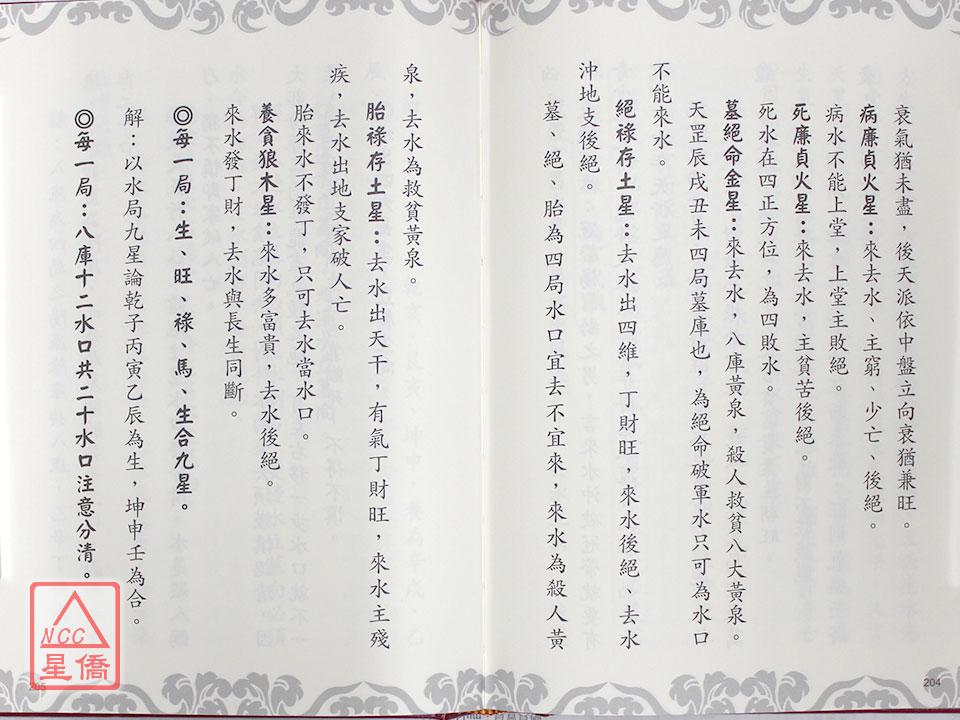 衰氣猶未盡，後天派依中盤立向衰猶兼旺。
病廉貞火星：來去水、主窮、少亡、後絕。
病水不能上堂，上堂主敗絕。
死廉貞火星：來去水，主貧苦後絕。
死水在四正方位，為四敗水。
墓絕命金星：來去水，八庫黃泉，殺人救貧八大黃泉。
天罡辰戌丑未四局墓庫也，為絕命破軍水只可為水口
不能來水。
絕祿存土星：去水出四維，丁財旺，來水後絕、去水
沖地支後絕。
墓、絕、胎為四局水口宜去不宜來，來水為殺人黃
204
泉，去水為救貧黃泉。
胎祿存土星：去水出天干，有氣丁財旺，來水主殘
疾，去水出地支家破人亡。
胎來水不發丁，只可去水當水口。
養貪狼木星：來水多富貴，去水後絕。
來水發丁財，去水與長生同斷。
◎每一局：生、旺、祿、馬、生合九星。
解：以水局九星論乾子丙寅乙辰為生，坤申壬為合。
◎每一局：八庫十二水口共二十水口注意分清。
205
NCC
星僑